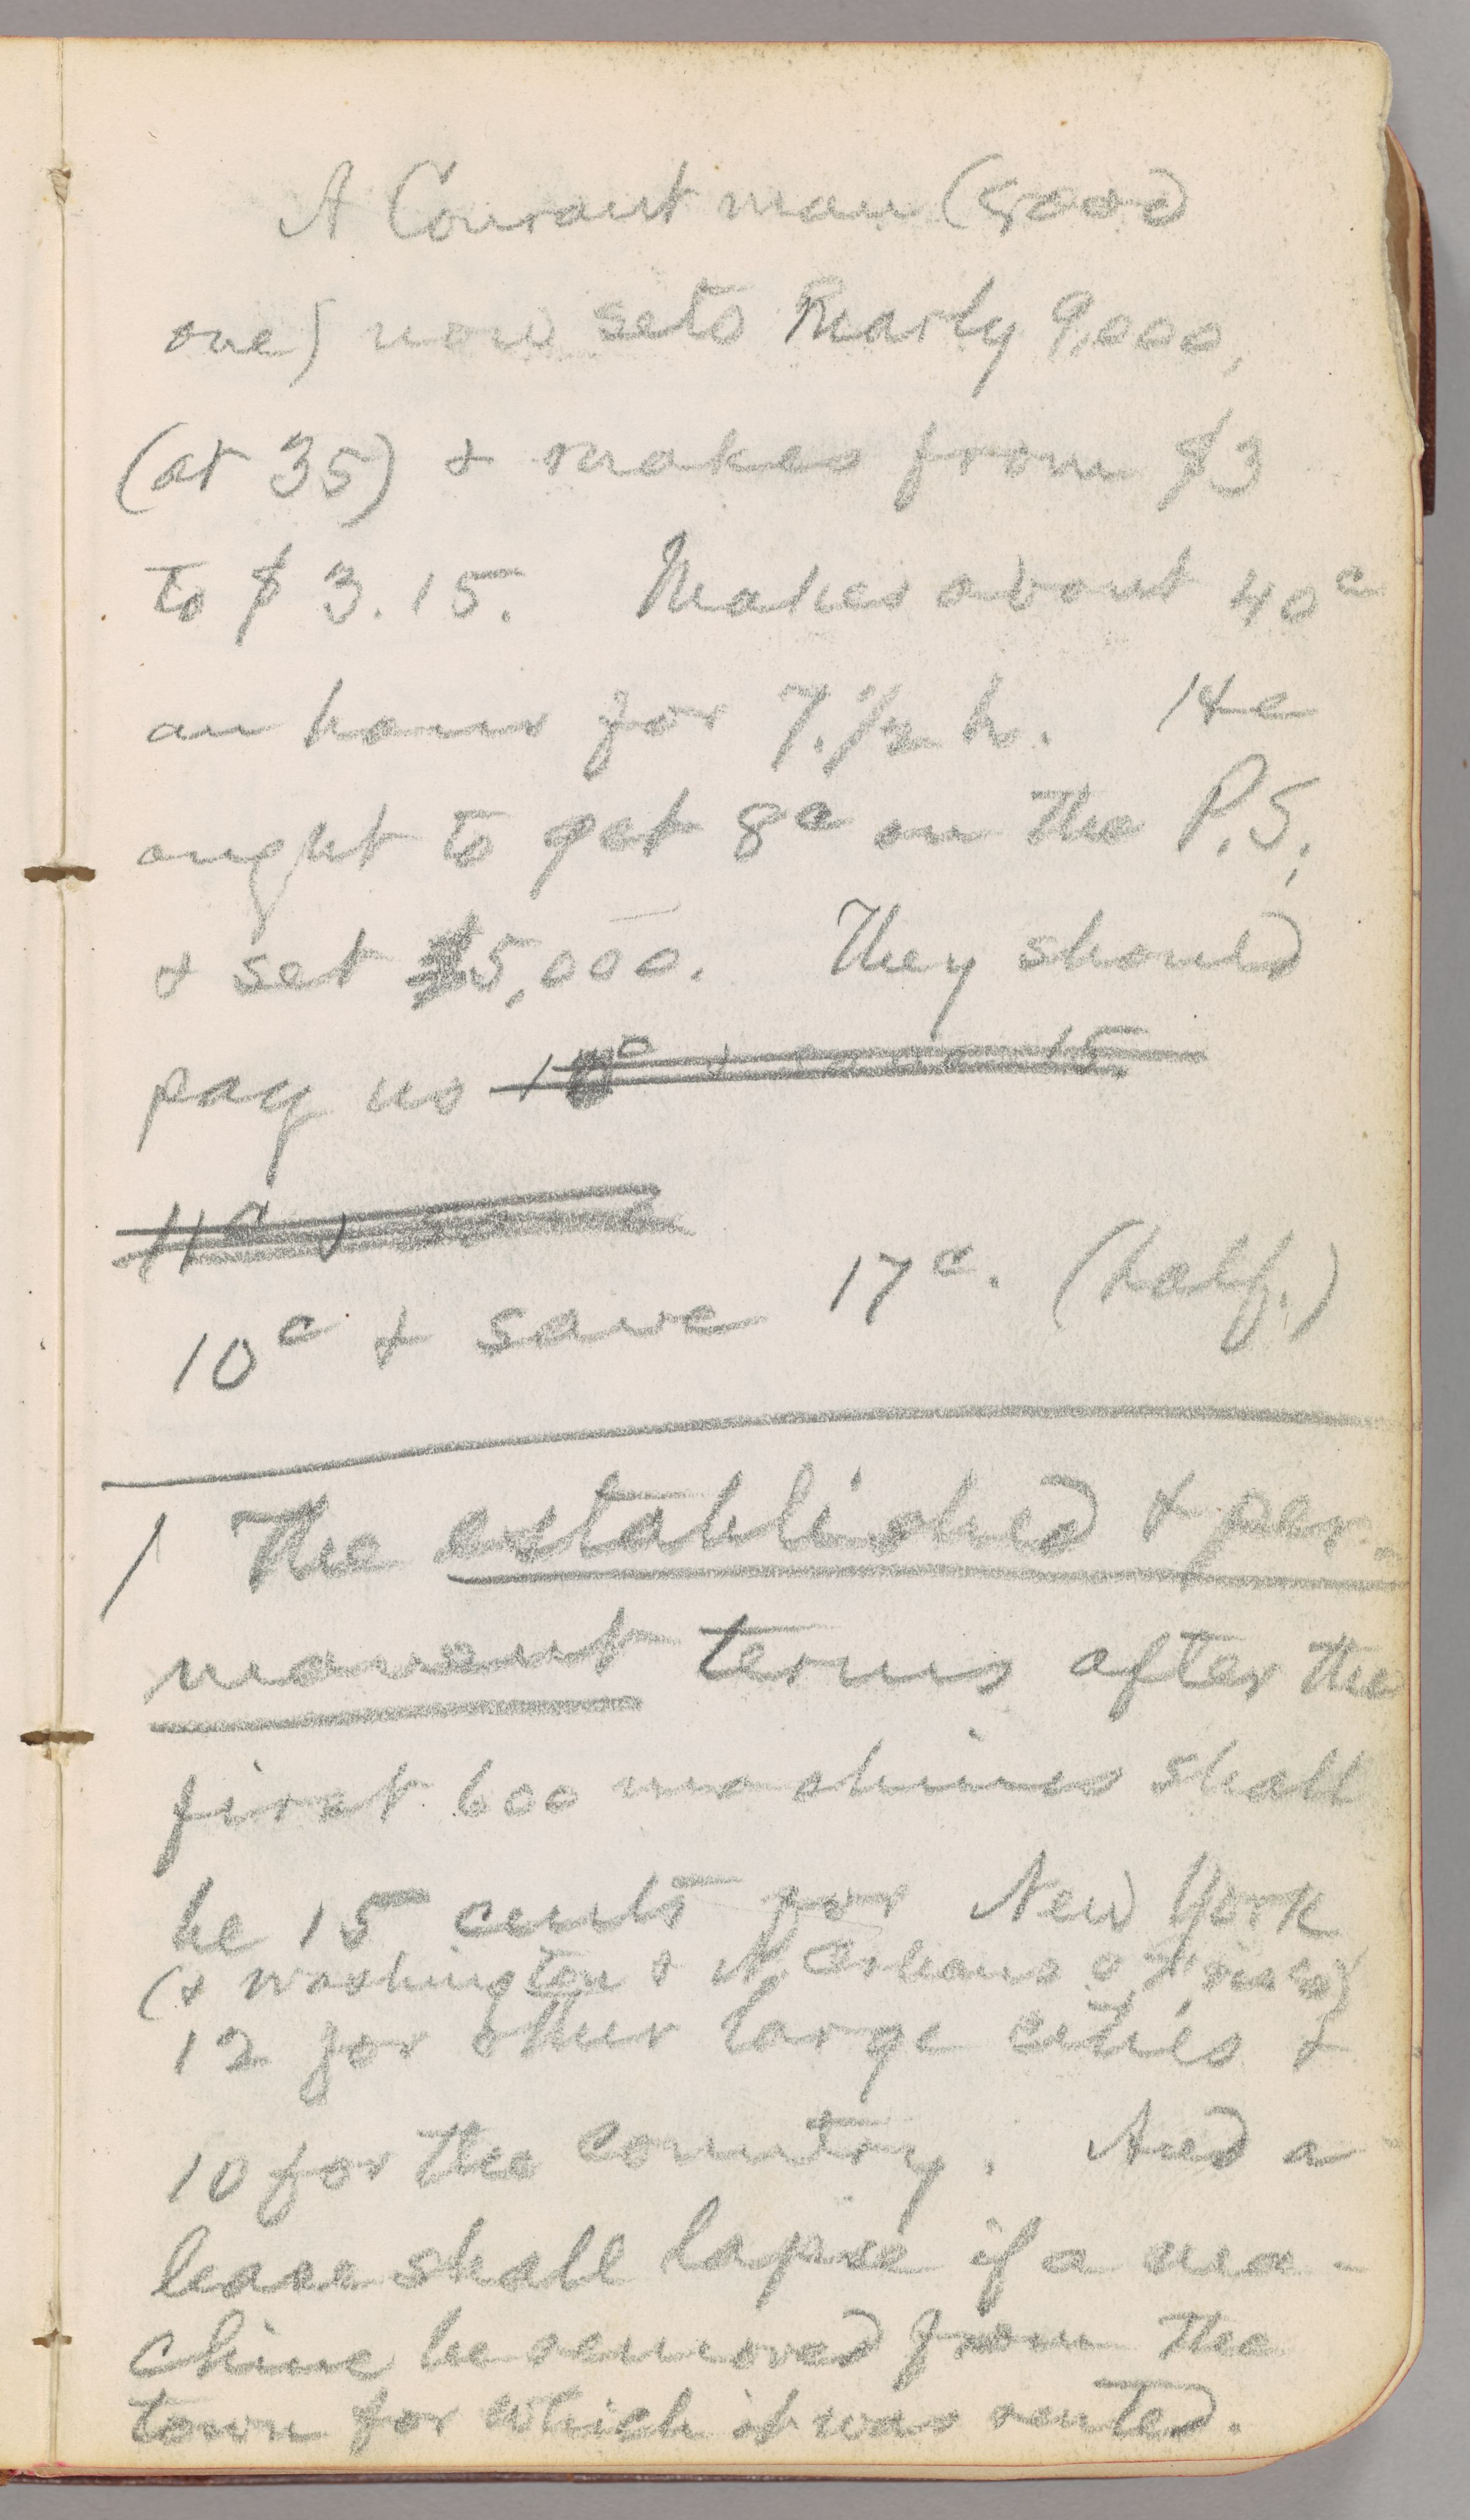 A Courant man (good
one) now sets nearly 9,000,
(at 35) & makes from $3
to $3.15. Makes about 40c
an hour for 7.½ h. He
ought to get 8c on the P.S.,
& set 5,000. They should
pay us 10c & save 15.
11c & save
10c & save 17c. (half.)
/ The established & per-
manent terms after the
first 600 machines shall
be 15 cents for New York
(& Washington & N. Orleans &
12 for other large cities &
10 for the country. And a
lease shall lapse if a ma-
chine be removed from the
town for which it was rented.